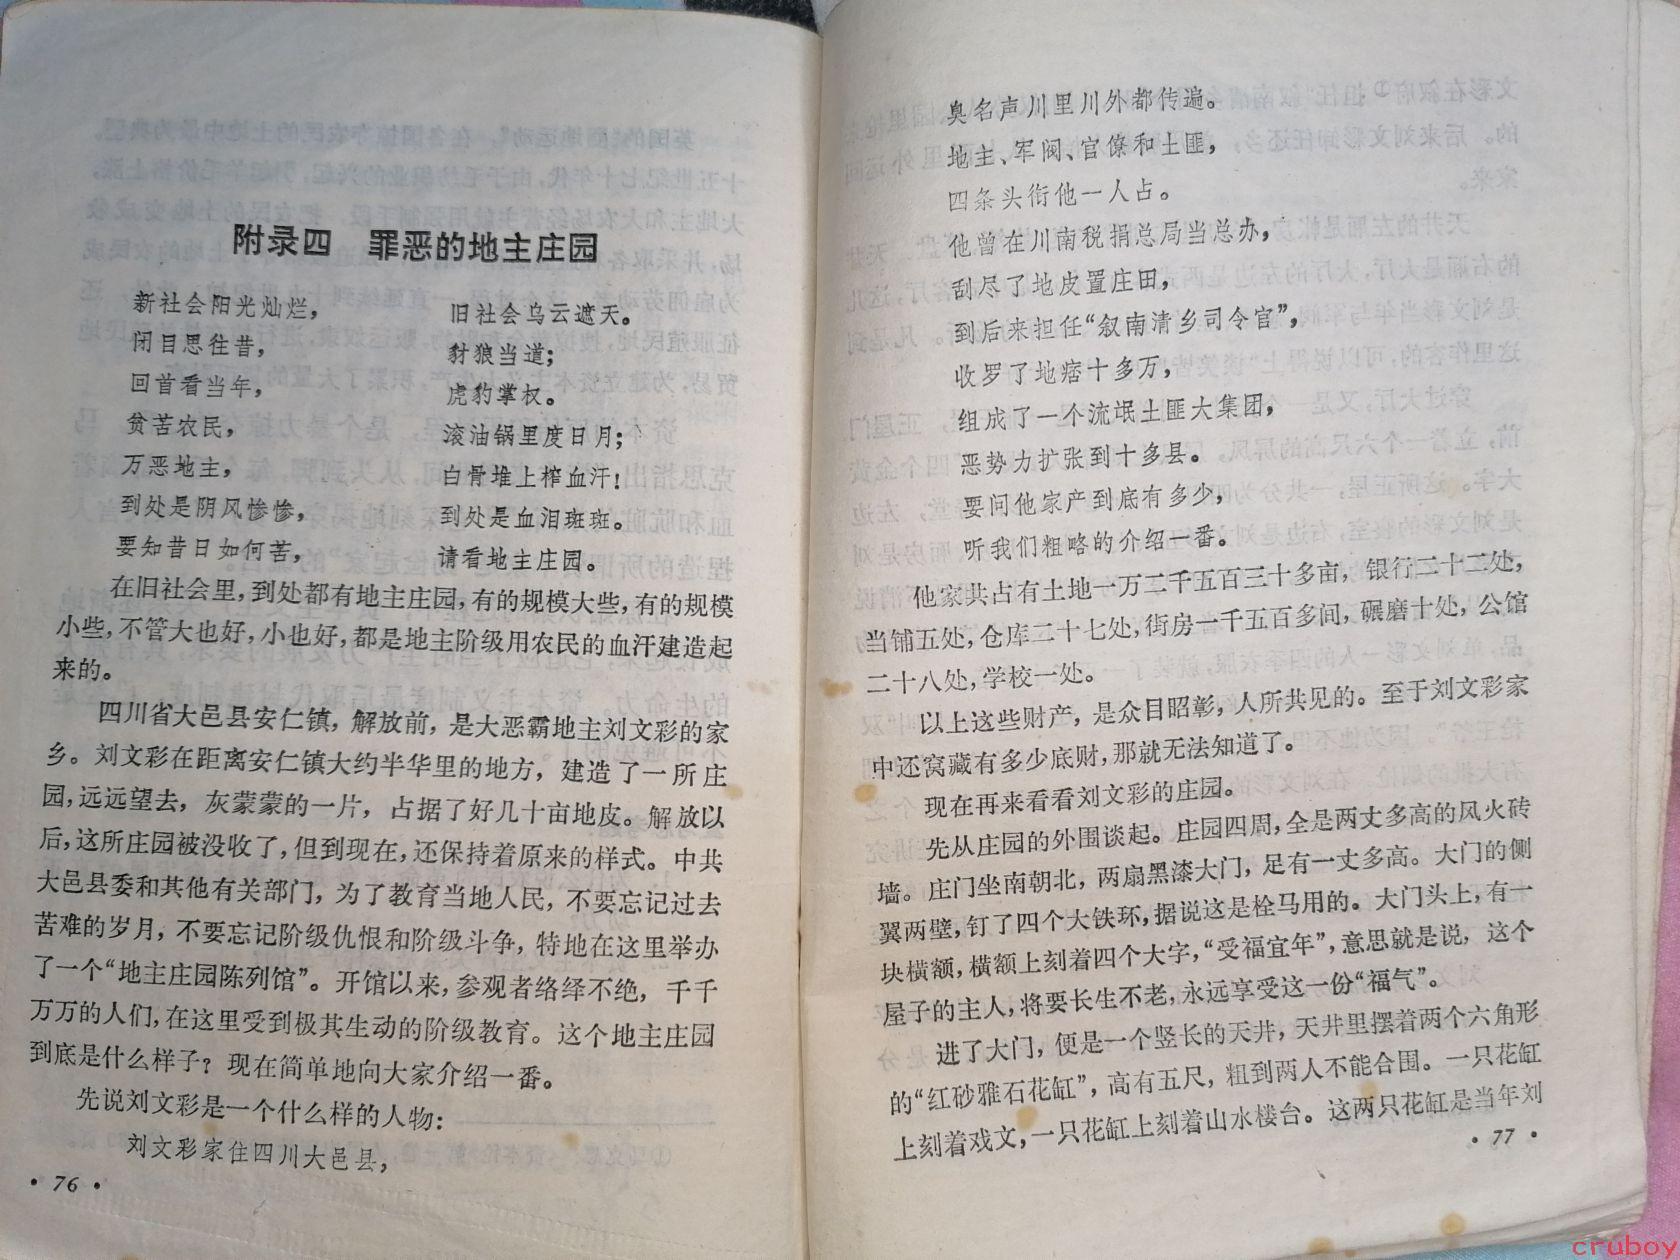 附录四　罪恶的地主庄园
新社会阳光灿烂，　旧社会乌云遮天。
闭目思往昔，　豺狼当道；
回首看当年，　虎豹掌权。
贫苦农民，　滚油锅里度日月；
万恶地主，　白骨堆上榨血汗！
到处是阴风惨惨，　到处是血泪斑斑。
要知昔日如何苦，　请看地主庄园。
在旧社会里，到处都有地主庄园，有的规模大些，有的规模
小些，不管大也好，小也好，都是地主阶级用农民的血汗建造起
来的。
四川省大邑县安仁镇，解放前，是大恶霸地主刘文彩的家
乡。刘文彩在距离安仁镇大约半华里的地方，建造了一所庄
园，远远望去，灰蒙蒙的一片，占据了好几十亩地皮。解放以
后，这所庄园被没收了，但到现在，还保持着原来的样式。中共
大邑县委和其他有关部门，为了教育当地人民，不要忘记过去
苦难的岁月，不要忘记阶级仇恨和阶级斗争，特地在这里举办
了一个“地主庄园陈列馆”。开馆以来，参观者络绎不绝，千千
万万的人们，在这里受到极其生动的阶级教育。这个地主庄园
到底是什么样子？现在简单地向大家介绍一番。
先说刘文彩是一个什么样的人物：
刘文彩家住四川大邑县，
• 76 •
臭名声川里川外都传遍。
地主、军阀、官僚和土匪，
四条头衔他一人占。
他曾在川南税捐总局当总办，
刮尽了地皮置庄田，
到后来担任“叙南清乡司令官”，
收罗了地痞十多万，
组成了一个流氓土匪大集团，
恶势力扩张到十多县。
要问他家产到底有多少，
听我们粗略的介绍一番。
他家共占有土地一万二千五百三十多亩，银行二十二处，
当铺五处，仓库二十七处，街房一千五百多间，碾磨十处，公馆
二十八处，学校一处。
以上这些财产，是众目昭彰，人所共见的。至于刘文彩家
中还窝藏有多少底财，那就无法知道了。
现在再来看看刘文彩的庄园。
先从庄园的外围谈起。庄园四周，全是两丈多高的风火砖
墙。庄门坐南朝北，两扇黑漆大门，足有一丈多高。大门的侧
翼两壁，钉了四个大铁环，据说这是栓马用的。大门头上，有一
块横额，横额上刻着四个大字，“受福宜年”，意思就是说，这个
屋子的主人，将要长生不老，永远享受这一份“福气”。
进了大门，便是一个竖长的天井，天井里摆着两个六角形
的“红砂雅石花缸”，高有五尺，粗到两人不能合围。一只花缸
上刻着戏文，一只花缸上刻着山水楼台。这两只花缸是当年刘
• 77 •
cruboy